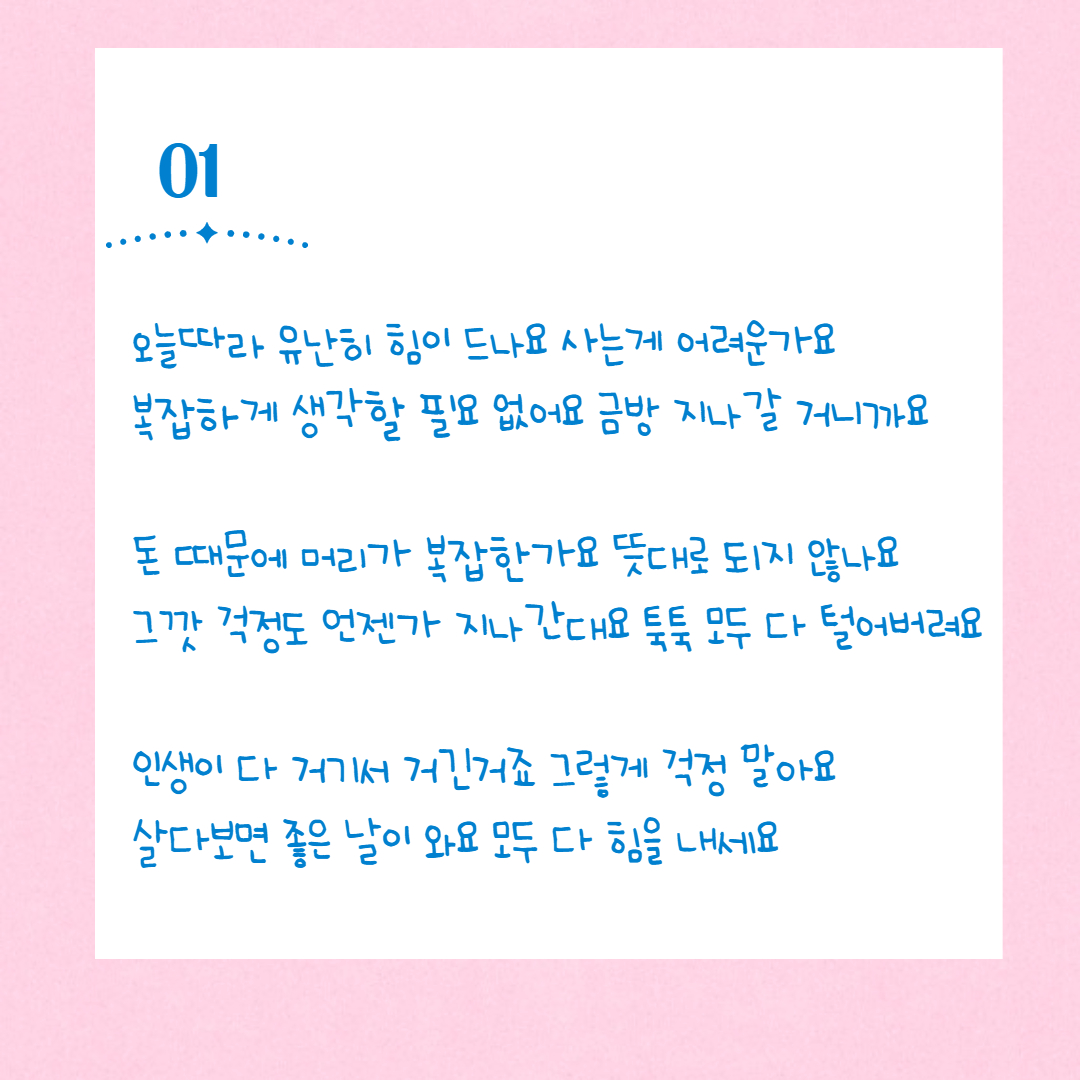 01
오늘따라 유난히 힘이 드나요 사는게 어려운가요
복잡하게 생각할 필요 없어요 금방 지나갈 거니까요
돈 때문에 머리가 복잡한가요 뜻대로 되지 않나요
그깟 걱정도 언젠가 지나간대요 툭툭 모두 다 털어버려요
인생이 다 거기서 거긴거죠 그렇게 걱정 말아요
살다보면 좋은 날이 와요 모두 다 힘을 내세요